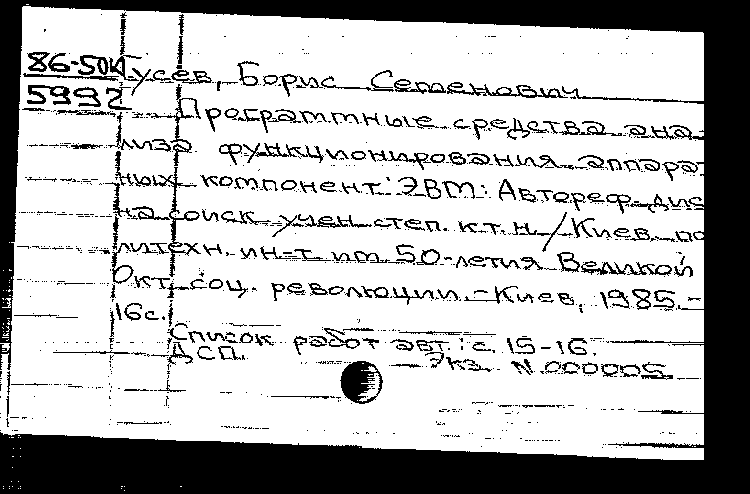 86-50к Гусев, Борис Семенович
5992
Программные средства ана-
лиза функционирования аппарат
ных компонент ЭВМ: Автореф. дис
на соиск. учен. степ. к.т.н. / Киев. по
литехн. ин-т им 50-летия Великой
Окт. соц. революции. - Киев, 1985. -
16 с.
Список работ авт.: с. 15-16.
ДСП. Экз. N 000005